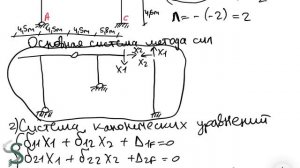 A C
4,5м 4,5м 4,5м 5,8м
4,5м
Л = - (-2) = 2
Основная система метода сил
X1 X2 X1
2) Система канонических уравнений
δ11X1 + δ12X2 + Δ1F = 0
δ21X1 + δ22X2 + Δ2F = 0